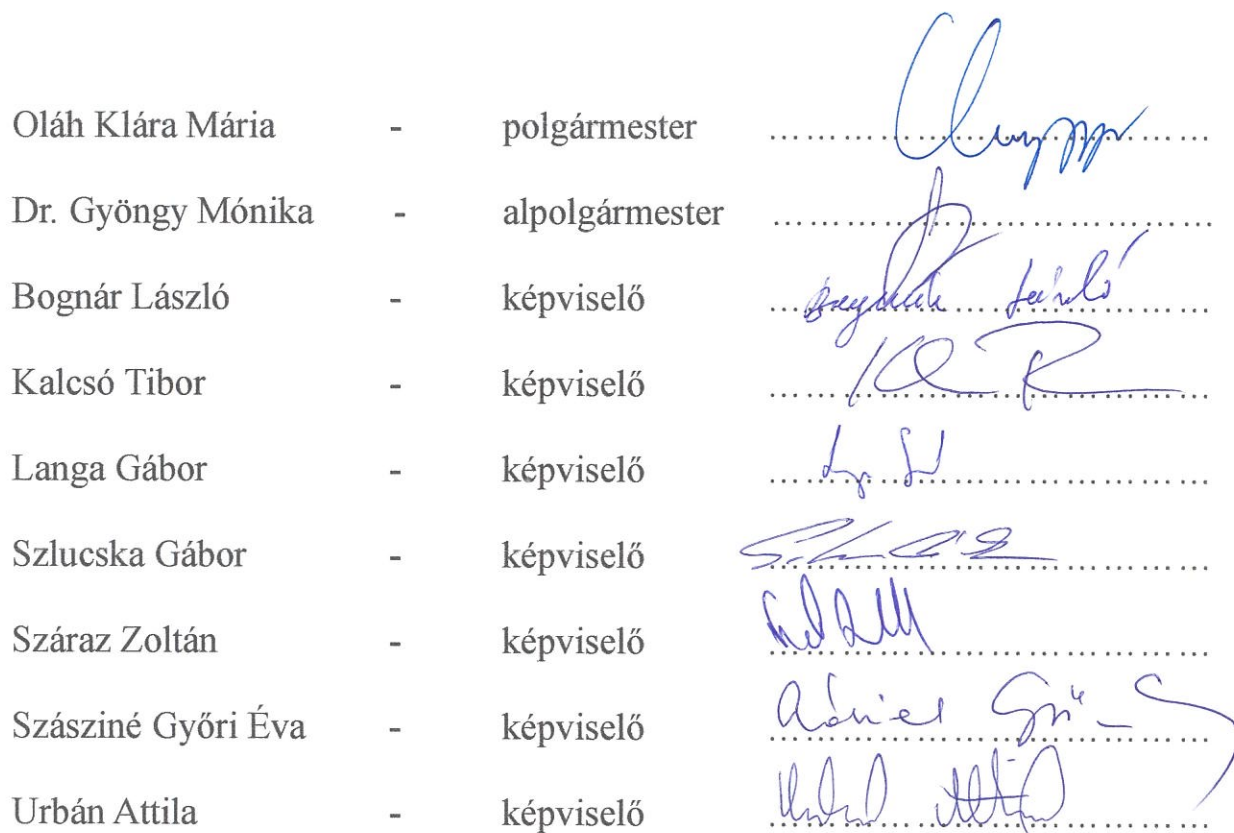 Oláh Klára Mária - polgármester ........................................
Dr. Gyöngy Mónika - alpolgármester ........................................
Bognár László - képviselő ........................................
Kalcsó Tibor - képviselő ........................................
Langa Gábor - képviselő ........................................
Szlucska Gábor - képviselő ........................................
Száraz Zoltán - képviselő ........................................
Szásziné Győri Éva - képviselő ........................................
Urbán Attila - képviselő ........................................